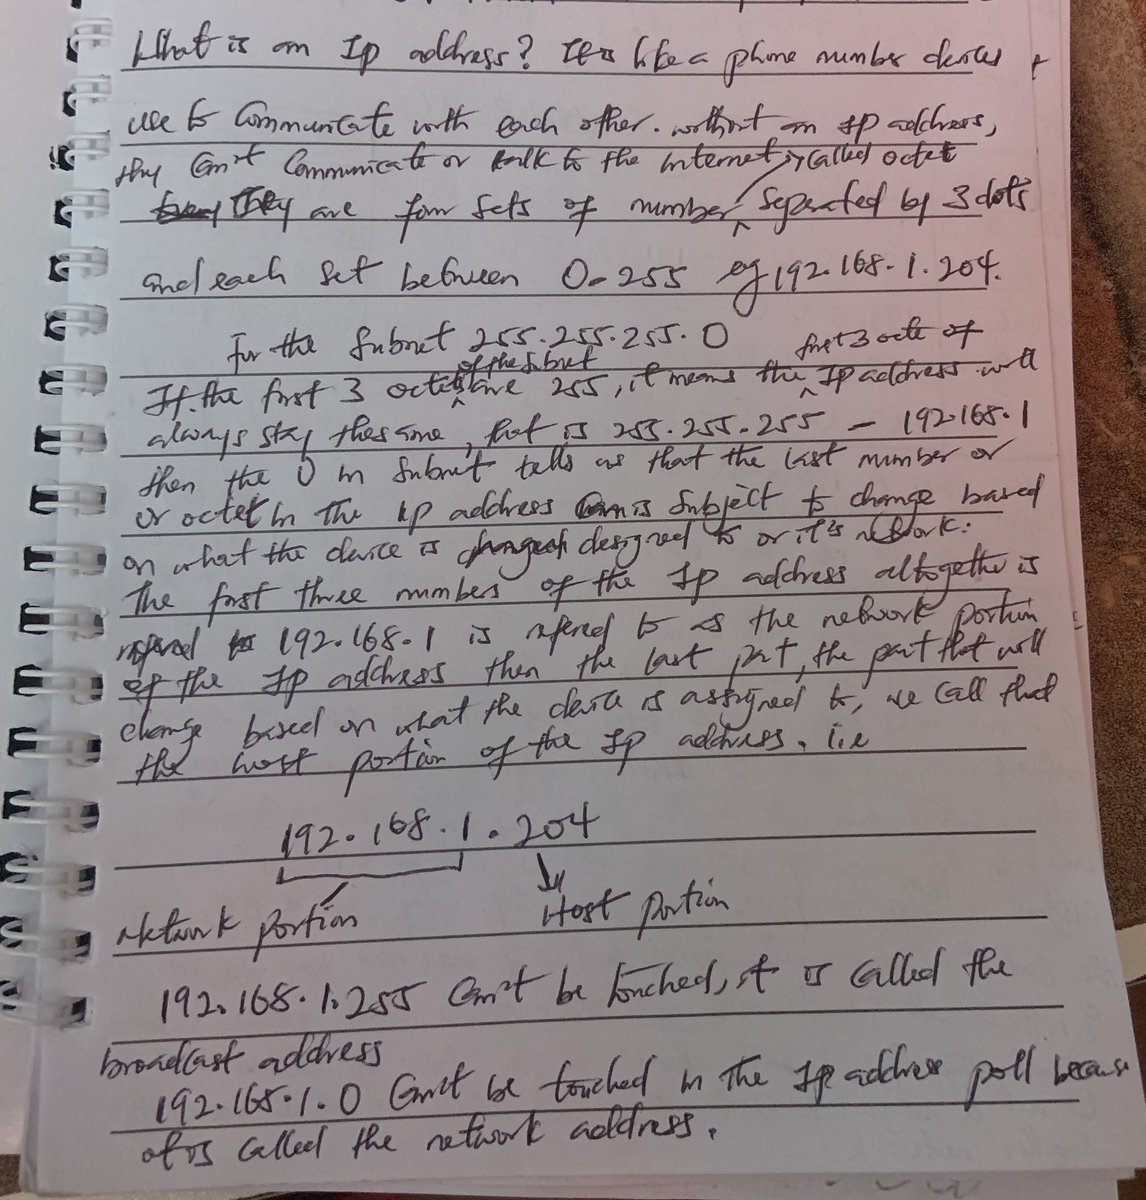 What is an Ip address? It is like a phone number devices
use to Communicate with each other. without an Ip address,
they Can't Communicate or talk to the internet
is called octet
They are four sets of number separated by 3 dots
and each set between 0-255 eg 192.168.1.204.
For the Subnet 255.255.255.0
of the subnet
first 3 octe of
If the first 3 octets are 255, it means the Ip address will
always stay the same, that is 255.255.255 - 192.168.1
then the 0 in Subnet tells us that the last number or
or octet in the ip address is Subject to change based
on what the device is designed to or it's network.
The first three numbers of the Ip address altogether is
192.168.1 is refered to as the network portion
of the Ip address then the last part, the part that will
change based on what the device is assigned to, we Call that
the host portion of the Ip address. i.e
192.168.1.204
Network portion
Host Portion
192.168.1.255 Can't be touched, it is Called the
broadcast address
192.168.1.0 Can't be touched in the Ip address poll because
it is Called the network address.